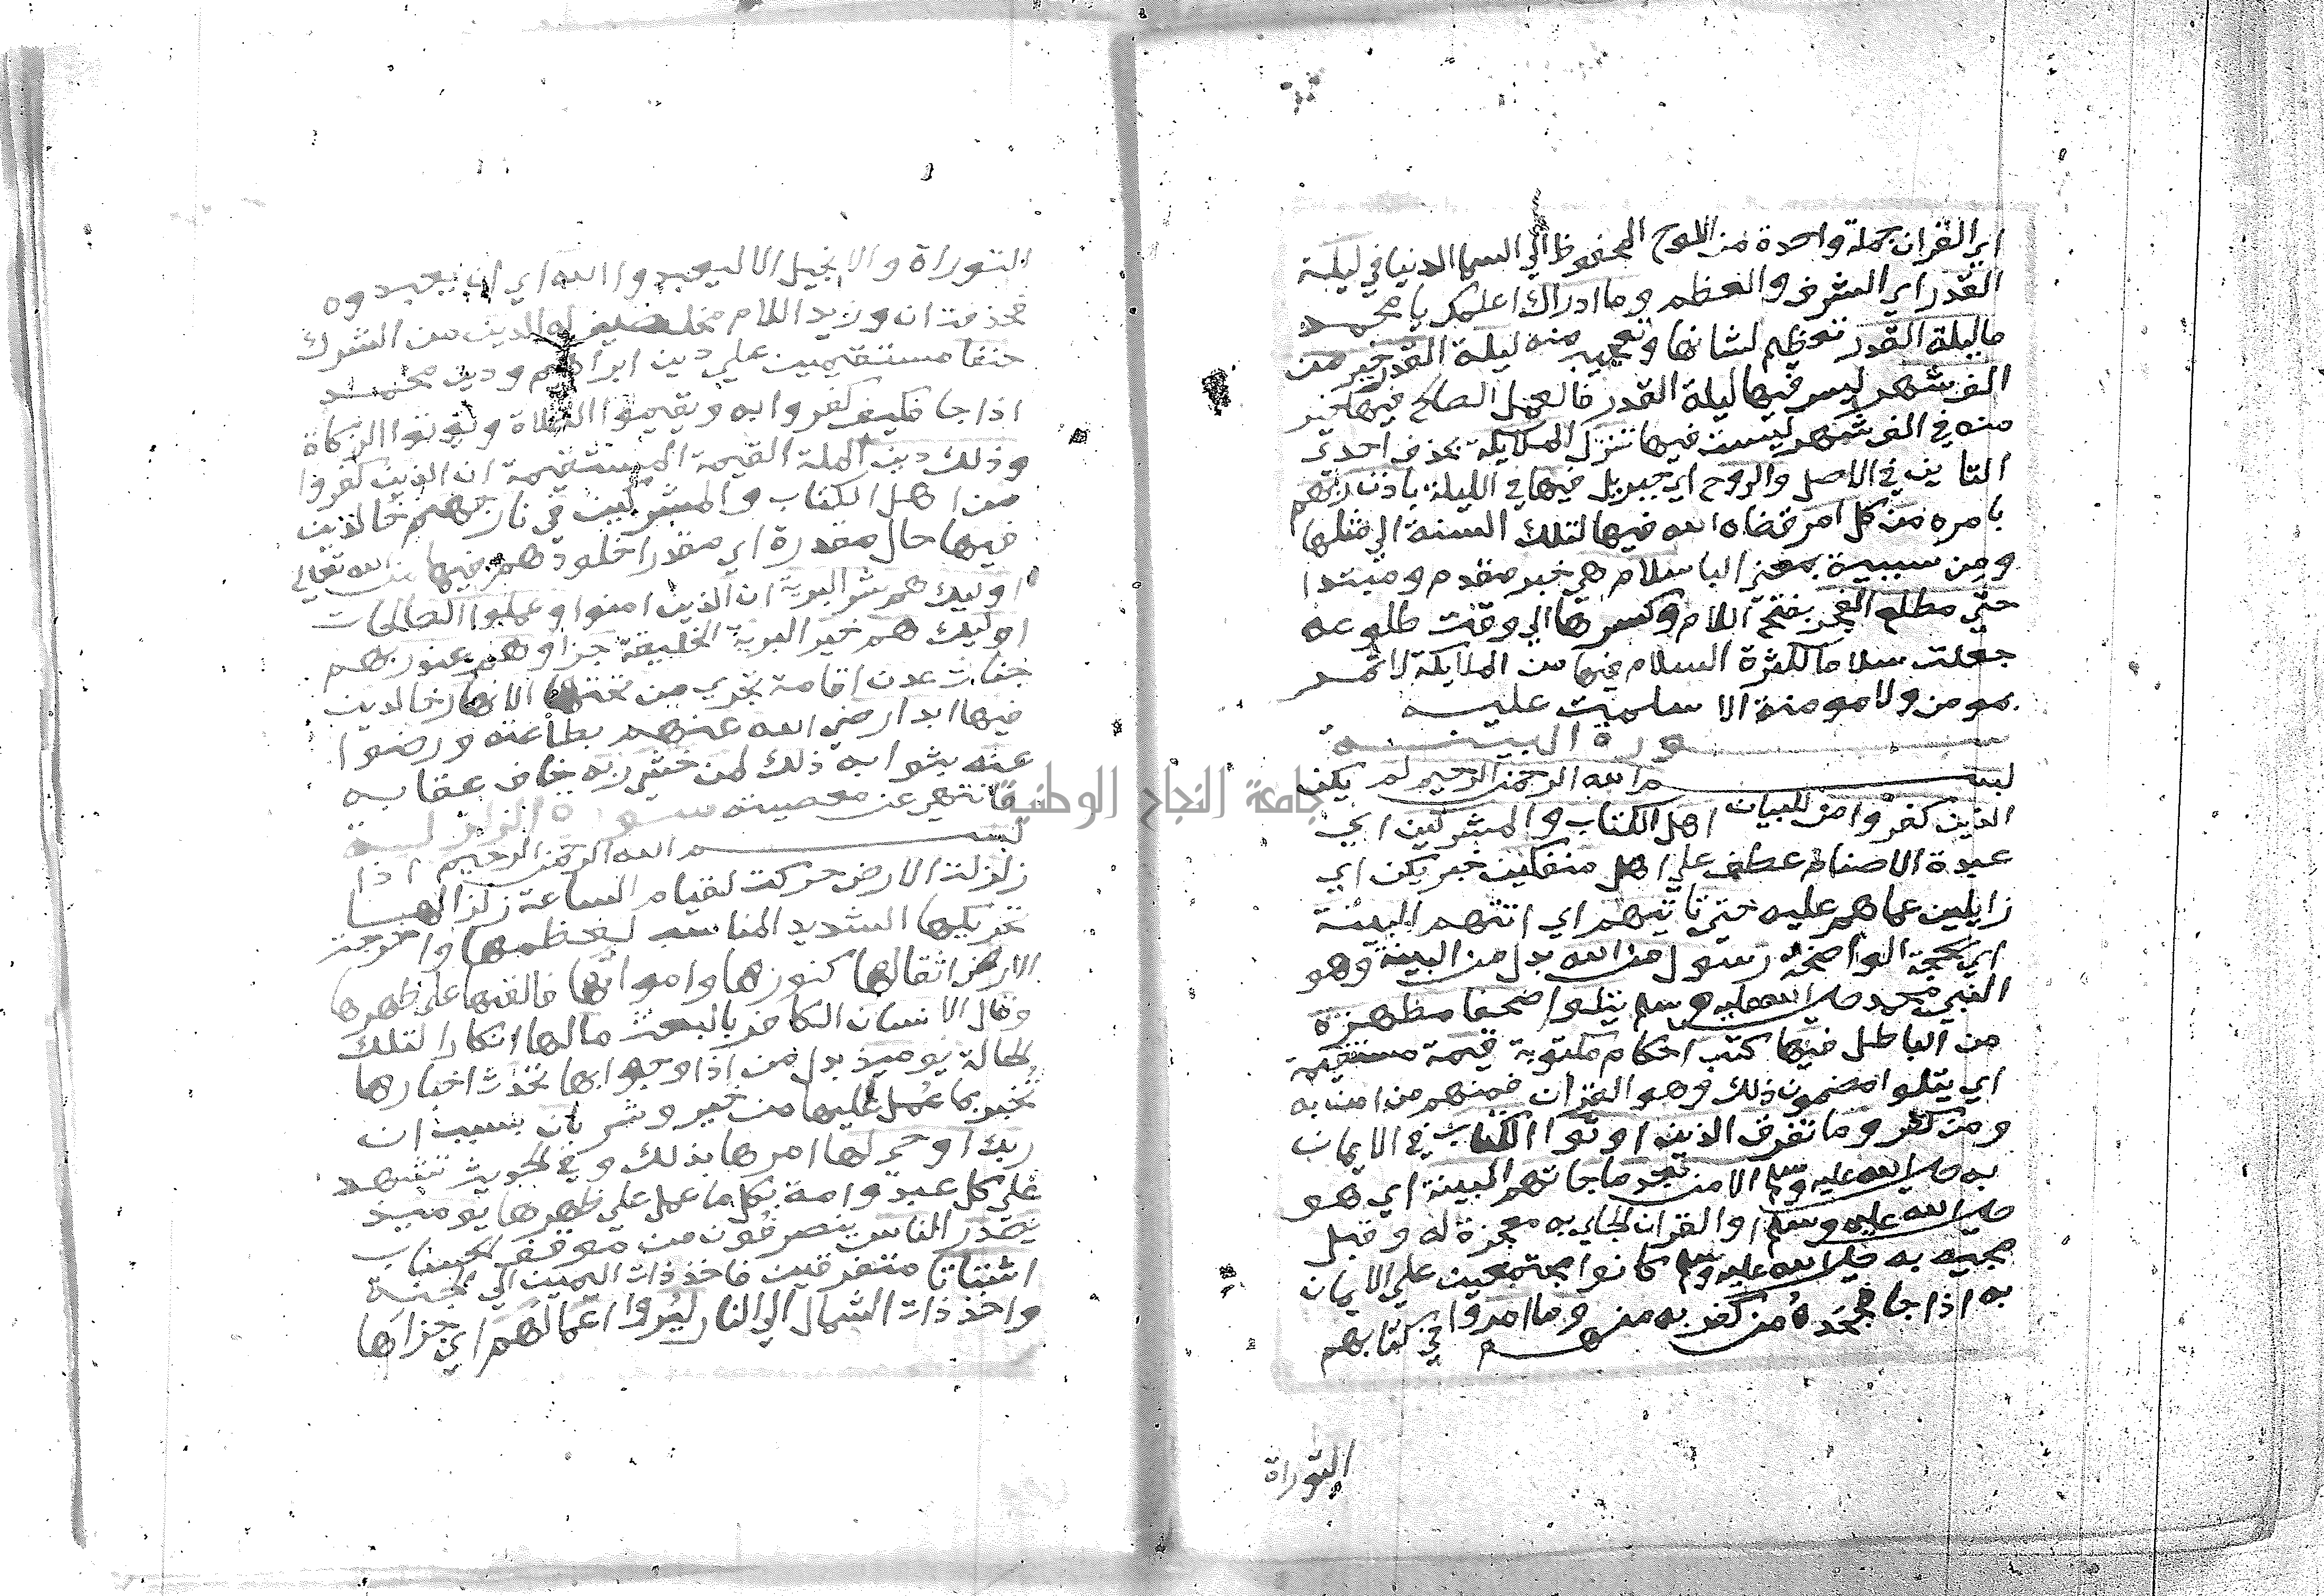 اي القران جملة واحدة من اللوح المحفوظ الي السما الدنيا في ليلة
القدر اي الشرف والعظم وما ادراك اعلمك يا محمد
ما ليلة القدر تعظيم لشانها وتعجيب منه ليلة القدر خير من
الف شهر ليس فيها ليلة القدر فالعمل الصالح فيها خير
منه في الف شهر ليست فيها تنزل الملايكة بحذف احدي
التاين في الاصل والروح اي جبريل فيها في الليلة باذن ربهم
بامره من كل امر قضاه الله فيها لتلك السنة الي مثلها
ومن سببية بمعني البا سلام هي خبر مقدم ومبتدا
حتي مطلع الفجر بفتح اللام وكسرها الي وقت طلوعه
جعلت سلاما لكثرة السلام فيها من الملايكة لا تمر
بمومن ولا مومنة الا سلمت عليه
سورة البينة
بسم الله الرحمن الرحيم لم يكن
الذين كفروا من للبيان اهل الكتاب والمشركين اي
عبدة الاصنام عطف علي اهل منفكين خبر يكن اي
زايلين عما هم عليه حتي تاتيهم اي اتتهم البينة
اي الحجة الواضحة رسول من الله بدل من البينة وهو
النبي محمد صلي الله عليه وسلم يتلوا صحفا مطهرة
من الباطل فيها كتب احكام مكتوبة قيمة مستقيمة
اي يتلوا مضمون ذلك وهو القران فمنهم من امن به
ومن كفر وما تفرق الذين اوتوا الكتاب في الايمان
به صلي الله عليه وسلم الا من بعد ما جاتهم البينة اي هو
صلي الله عليه وسلم او القران الجاي به معجزة له وقبل
مجيه به صلي الله عليه وسلم كانوا مجتمعين علي الايمان
به اذا جا فجحده من كفر به منهم وما امروا في كتابهم
التوراة
التوراة والانجيل الا ليعبدوا الله اي ان يعبدوه
فحذفت ان وزيد اللام مخلصين له الدين من الشرك
حنفا مستقيمين علي دين ابراهيم ودين محمد
اذا جا فكيف كفروا به ويقيموا الصلاة ويوتوا الزكاة
وذلك دين الملة القيمة المستقيمة ان الذين كفروا
من اهل الكتاب والمشركين في نار جهنم خالدين
فيها حال مقدرة اي مقدرا خلودهم فيها من الله تعالي
اوليك هم شر البرية ان الذين امنوا وعملوا الصالحات
اوليك هم خير البرية الخليقة جزاوهم عند ربهم
جنات عدن اقامة تجري من تحتها الانهار خالدين
فيها ابدا رضي الله عنهم بطاعته ورضوا
عنه بثوابه ذلك لمن خشي ربه خاف عقابه
فانتهي عن معصيته سورة الزلزلة
بسم الله الرحمن الرحيم اذا
زلزلت الارض حركت لقيام الساعة زلزالها
تحريكها الشديد المناسب لعظمها واخرجت
الارض اثقالها كنوزها وامواتها فالقتها علي ظهرها
وقال الانسان الكافر بالبعث ما لها انكارا لتلك
الحالة يوميذ بدل من اذا وجوابها تحدث اخبارها
تخبر بما عمل عليها من خير وشر بان بسبب ان
ربك اوحي لها امرها بذلك وفي الحديث تشهد
علي كل عبد وامة بكل ما عمل علي ظهرها يوميذ
يصدر الناس ينصرفون من موقف الحساب
اشتاتا متفرقين فاخذ ذات اليمين الي الجنة
واخذ ذات الشمال الي النار ليروا اعمالهم اي جزاها
جامعة النجاح الوطنية